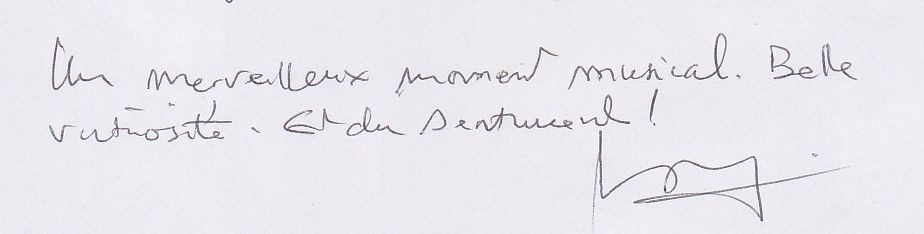 Un merveilleux moment musical. Belle
virtuosité. Et du sentiment !